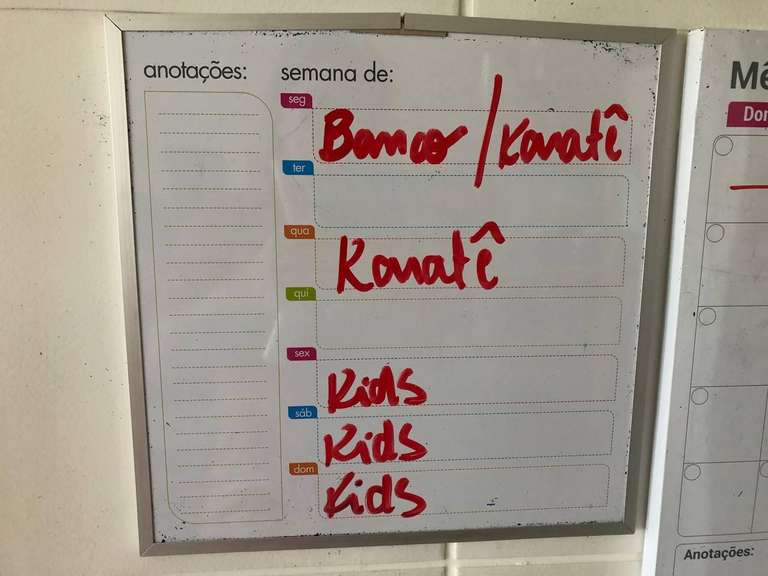 anotações: semana de:
seg
Banco / Karatê
ter
qua
Karatê
qui
sex
Kids
sáb
Kids
dom
Kids
Mê
Dor
Anotações: